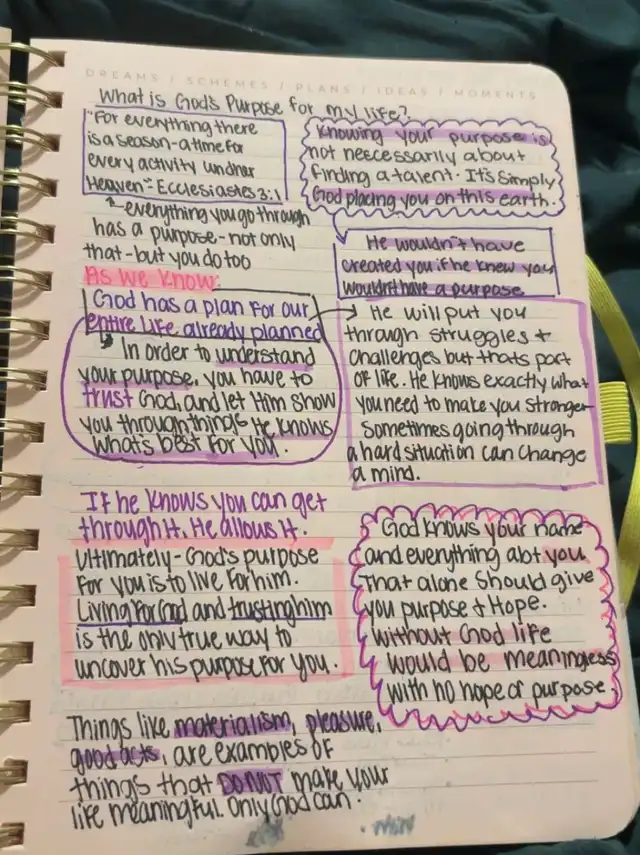 DREAMS / SCHEMES / PLANS / IDEAS / MOMENTS
What is God's Purpose for my life?
"For everything there
is a season-a time for
every activity undner
Heaven"- Ecclesiastes 3:1
everything you go through
has a purpose-not only
that-but you do too
Knowing your purpose is
not neccessarily about
finding a talent. It's simply
God placing you on this earth.
He wouldn't have
created you if he knew you
wouldn't have a purpose
As we know:
God has a plan for our
entire life already planned
In order to understand
your purpose, you have to
trust God, and let Him show
you through things He knows
what's best for you.
He will put you
through struggles +
challenges but thats part
of life. He knows exactly what
you need to make you stronger
Sometimes going through
a hard situation can change
a mind.
If he knows you can get
through it, He allows it.
Ultimately-God's purpose
for you is to live for him.
Living for God and trusting him
is the only true way to
uncover his purpose for you.
God knows your name
and everything abt you
That alone should give
you purpose + Hope.
without God life
would be meaningless
with no hope or purpose.
Things like materialism, pleasure,
good acts, are examples of
things that DO NOT make your
life meaningful. Only God can.